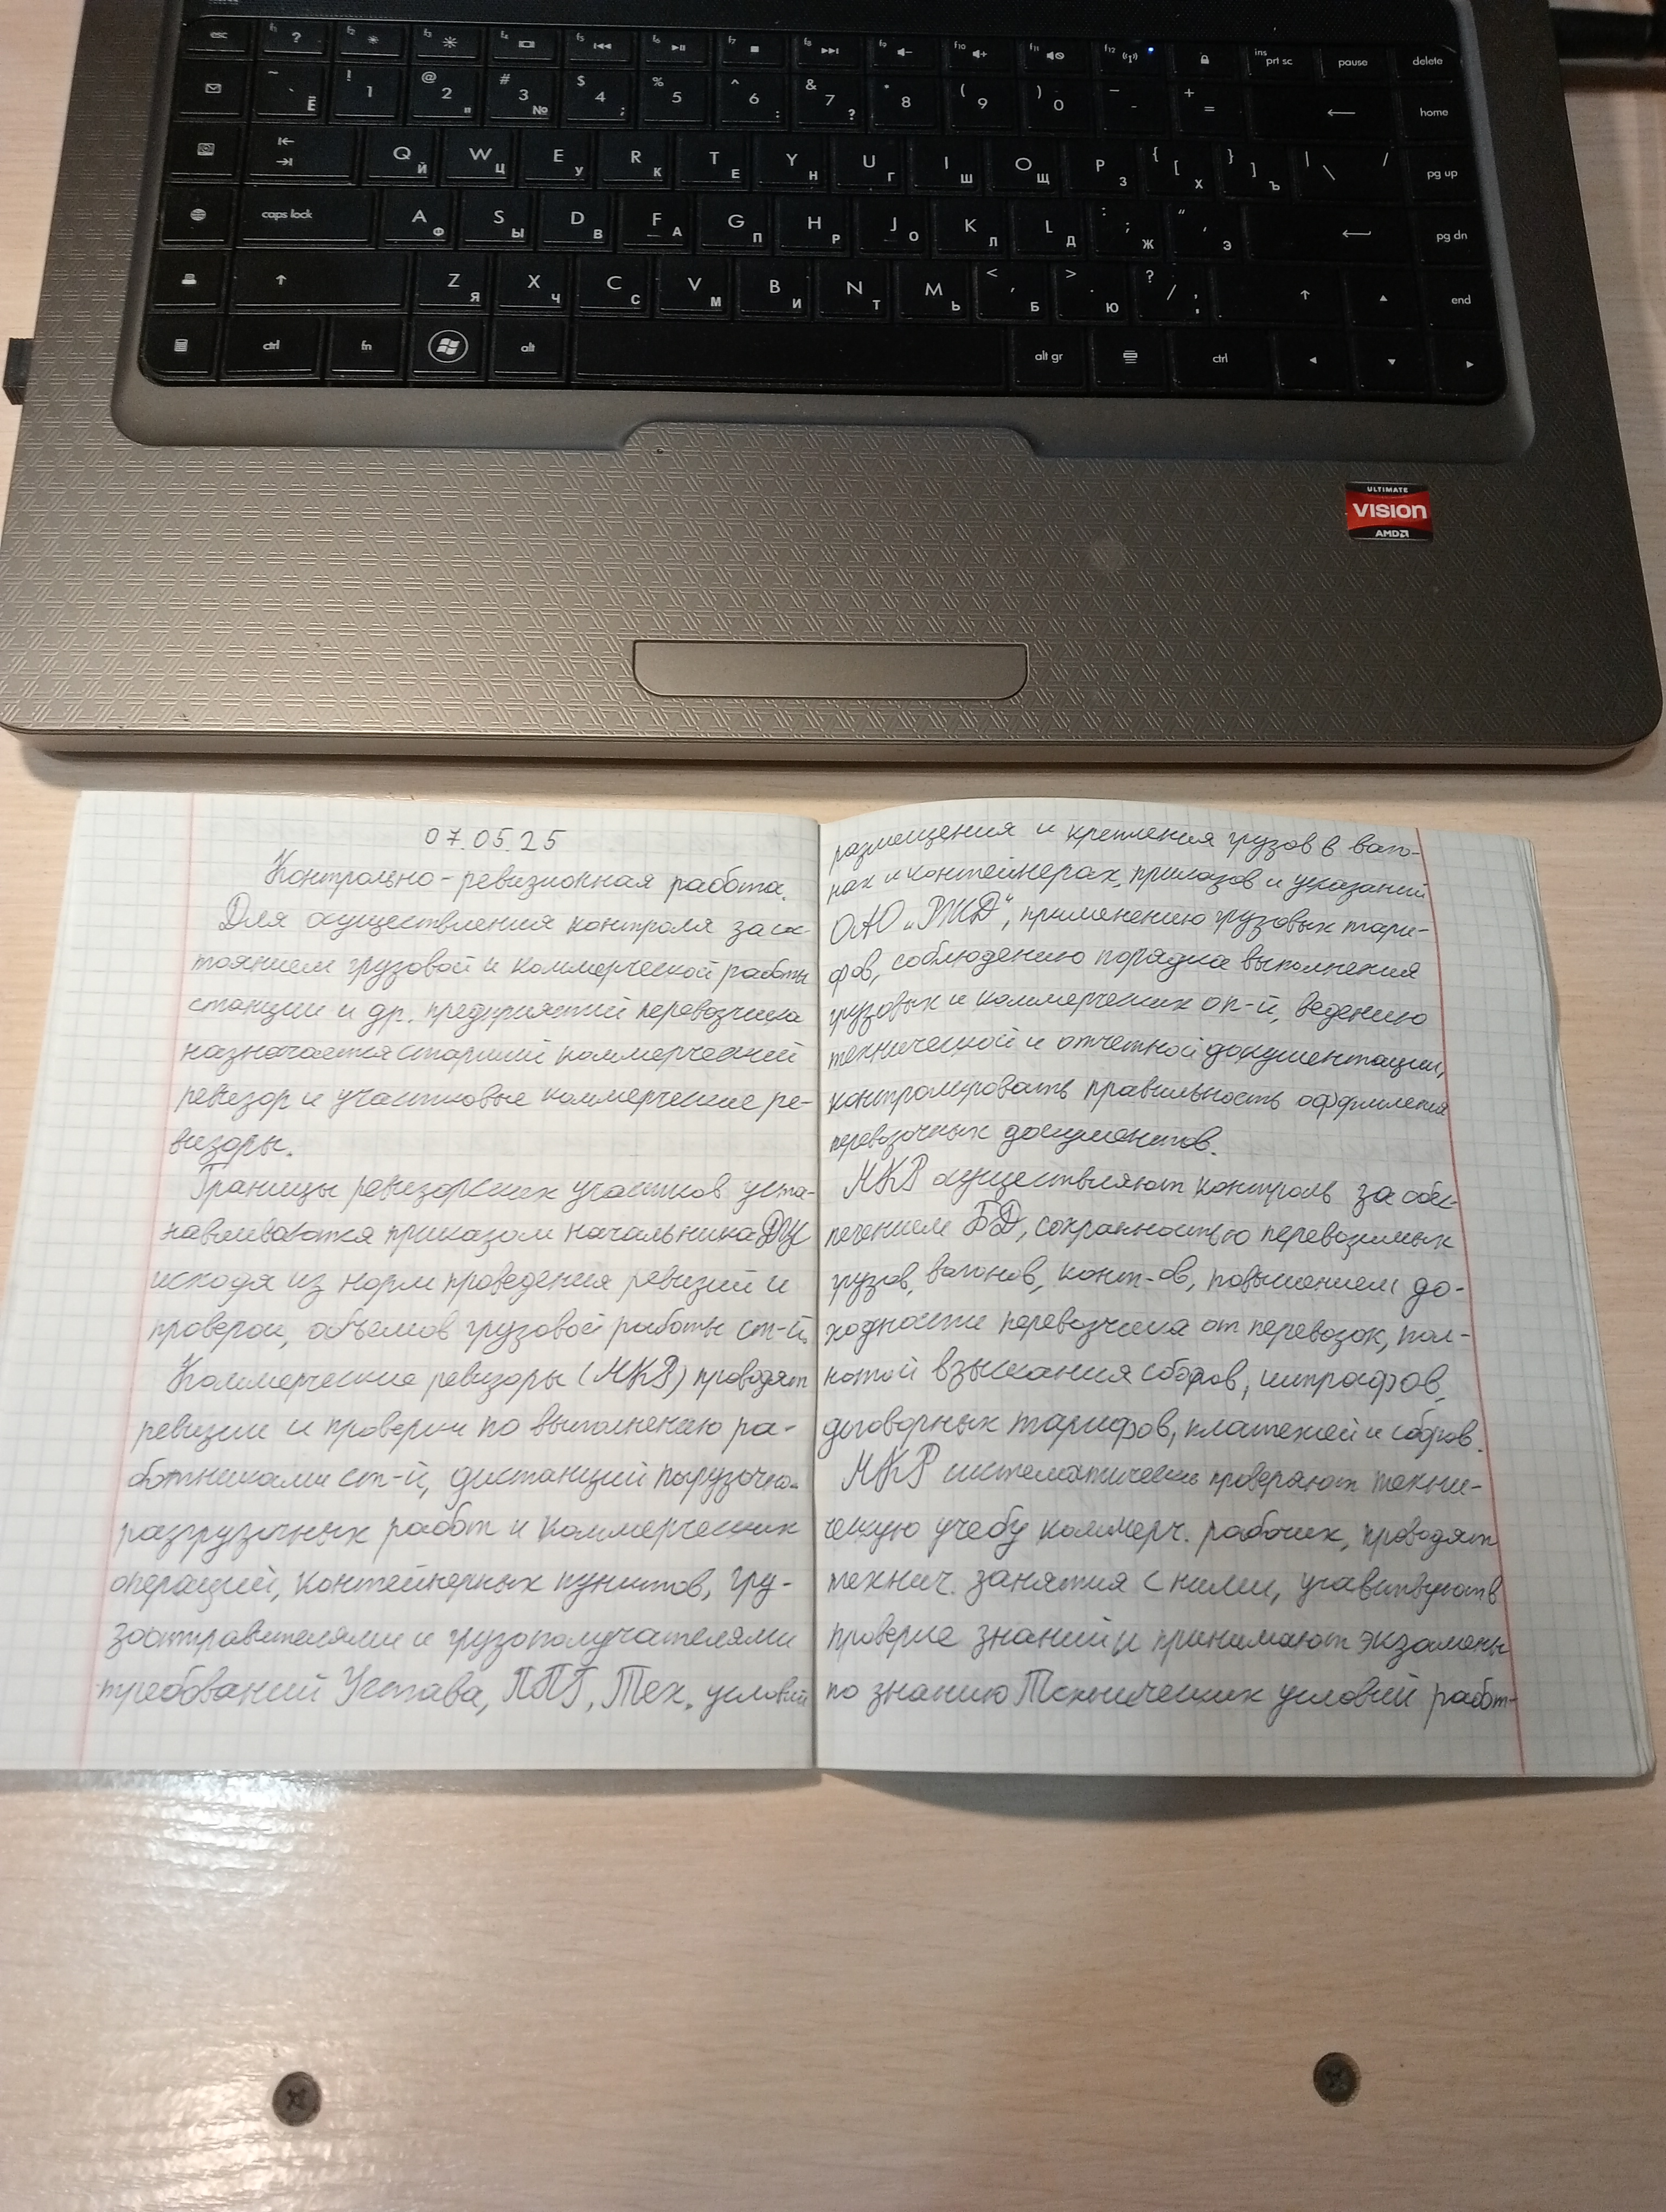 esc f1 ? f2 f3 f4 f5 f6 f7 f8 f9 f10 f11 f12 ins prt sc pause delete
~ ` Ё ! 1 @ 2 " # 3 № $ 4 ; % 5 ^ 6 : & 7 ? * 8 ( 9 ) 0 _ - + = home
Q Й W Ц E У R К T Е Y Н U Г I Ш O Щ P З { [ Х } ] Ъ | \ / pg up
caps lock A Ф S Ы D В F А G П H Р J О K Л L Д : ; Ж " ' Э pg dn
Z Я X Ч C С V М B И N Т M Ь < , Б > . Ю ? / , . end
ctrl fn alt alt gr ctrl
ULTIMATE
VISION
AMD
07.05.25
Контрольно-ревизионная работа.
Для осуществления контроля за сос-
тоянием грузовой и коммерческой работы
станции и др. предприятий перевозчика
назначается старший коммерческий
ревизор и участковые коммерческие ре-
визоры.
Границы ревизорских участков уста-
навливаются приказом начальника
исходя из норм проведения ревизий и
проверок, объемов грузовой работы ст-й.
Коммерческие ревизоры (МКР) проводят
ревизии и проверки по выполнению ра-
ботниками ст-й, дистанций погрузочно-
разгрузочных работ и коммерческих
операций, контейнерных пунктов, гру-
зоотправителями и грузополучателями
требований Устава, ППГ, Тех. условий
размещения и крепления грузов в ваго-
нах и контейнерах, приказов и указаний
ОАО „РЖД“, применению грузовых тари-
фов, соблюдению порядка выполнения
грузовых и коммерческих оп-й, ведению
технической и отчетной документации,
контролировать правильность оформления
перевозочных документов.
МКР осуществляют контроль за обес-
печением БД, сохранностью перевозимых
грузов, вагонов, конт-ов, повышением до-
ходности перевозчика от перевозок, пол-
нотой взыскания сборов, штрафов,
договорных тарифов, платежей и сборов.
МКР систематически проверяют техни-
ческую учебу коммерч. рабочих, проводят
технич. занятия с ними, учавствуют в
проверке знаний и принимают экзамены
по знанию Технических условий работ-